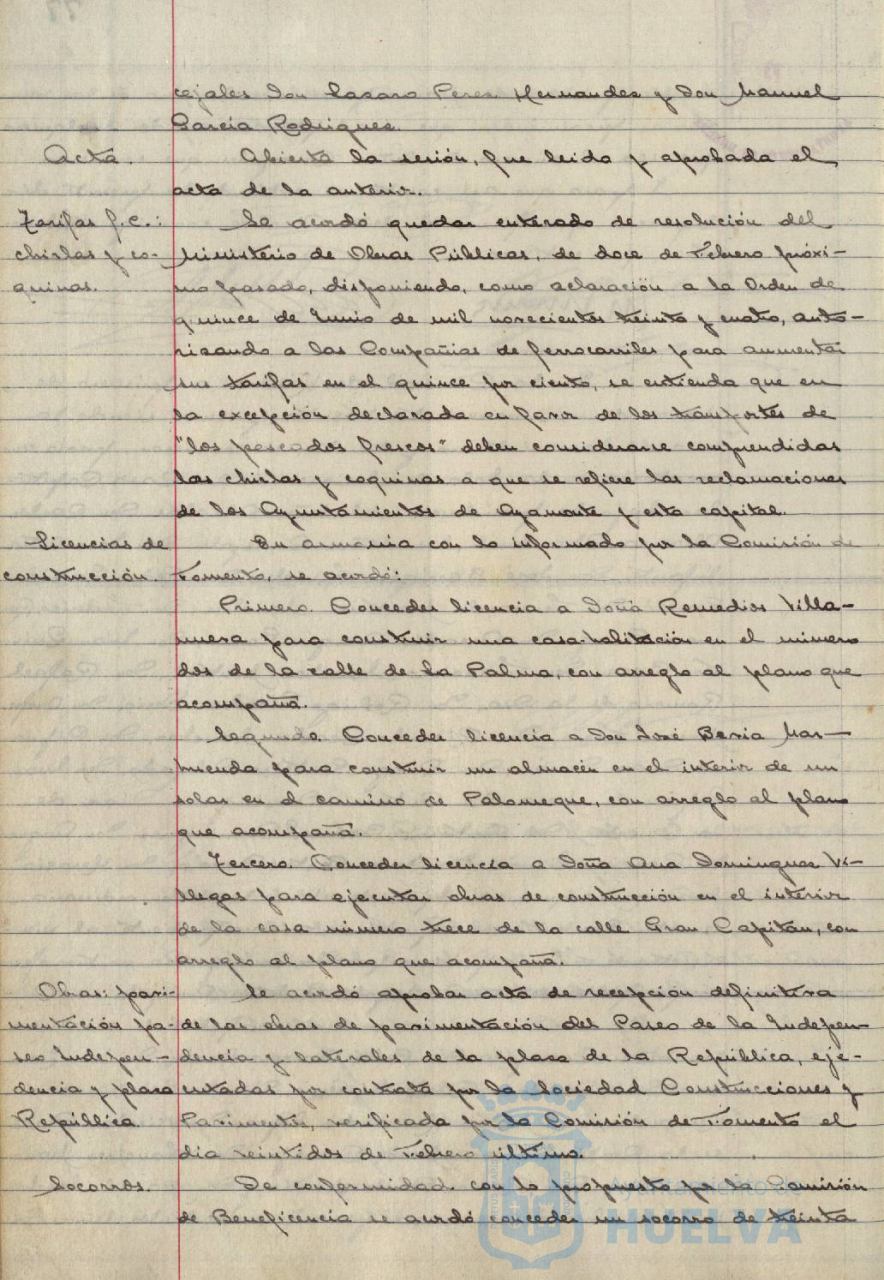 cejales Don Lazaro Perez Hernandez y Don Manuel
Garcia Rodriguez.
Acta.
Abierta la sesión, fue leida y aprobada el
acta de la anterior.
Tarifas f.c.:
chirlas y co-
quinas.
Se acordó quedar enterado de resolución del
Ministerio de Obras Públicas, de doce de Febrero próxi-
mo pasado, disponiendo, como aclaración a la Orden de
quince de Junio de mil novecientos treinta y cuatro, auto-
rizando a las Compañias de ferrocarriles para aumentar
sus tarifas en el quince por ciento, se entienda que en
la excepción declarada en favor de los transportes de
"los pescados frescos" deben considerarse comprendidas
las chirlas y coquinas a que se refiere las reclamaciones
de los Ayuntamientos de Ayamonte y esta capital.
Licencias de
construcción.
En armonia con lo informado por la Comisión de
Fomento, se acordó:
Primero. Conceder licencia a Doña Remedios Villa-
nueva para construir una casa-habitación en el número
dos de la calle de la Palma, con arreglo al plano que
acompaña.
Segundo. Conceder licencia a Don José Bexia Mar-
huenda para construir un almacén en el interior de un
solar en el camino de Palomeque, con arreglo al plano
que acompaña.
Tercero. Conceder licencia a Doña Ana Dominguez Vi-
llegas para ejecutar obras de construcción en el interior
de la casa número trece de la calle Gran Capitán, con
arreglo al plano que acompaña.
Obras: pavi-
mentación pa-
seo Indepen-
dencia y plaza
República
Se acordó aprobar acta de recepción definitiva
de las obras de pavimentación del Paseo de la Indepen-
dencia y laterales de la plaza de la República, eje-
cutadas por contrata por la Sociedad Construcciones y
Pavimentos, verificada por la Comisión de Fomento el
dia veintidos de Febrero último.
Socorros.
De conformidad con lo propuesto por la Comisión
de Beneficencia se acordó conceder un socorro de treinta
HUELVA